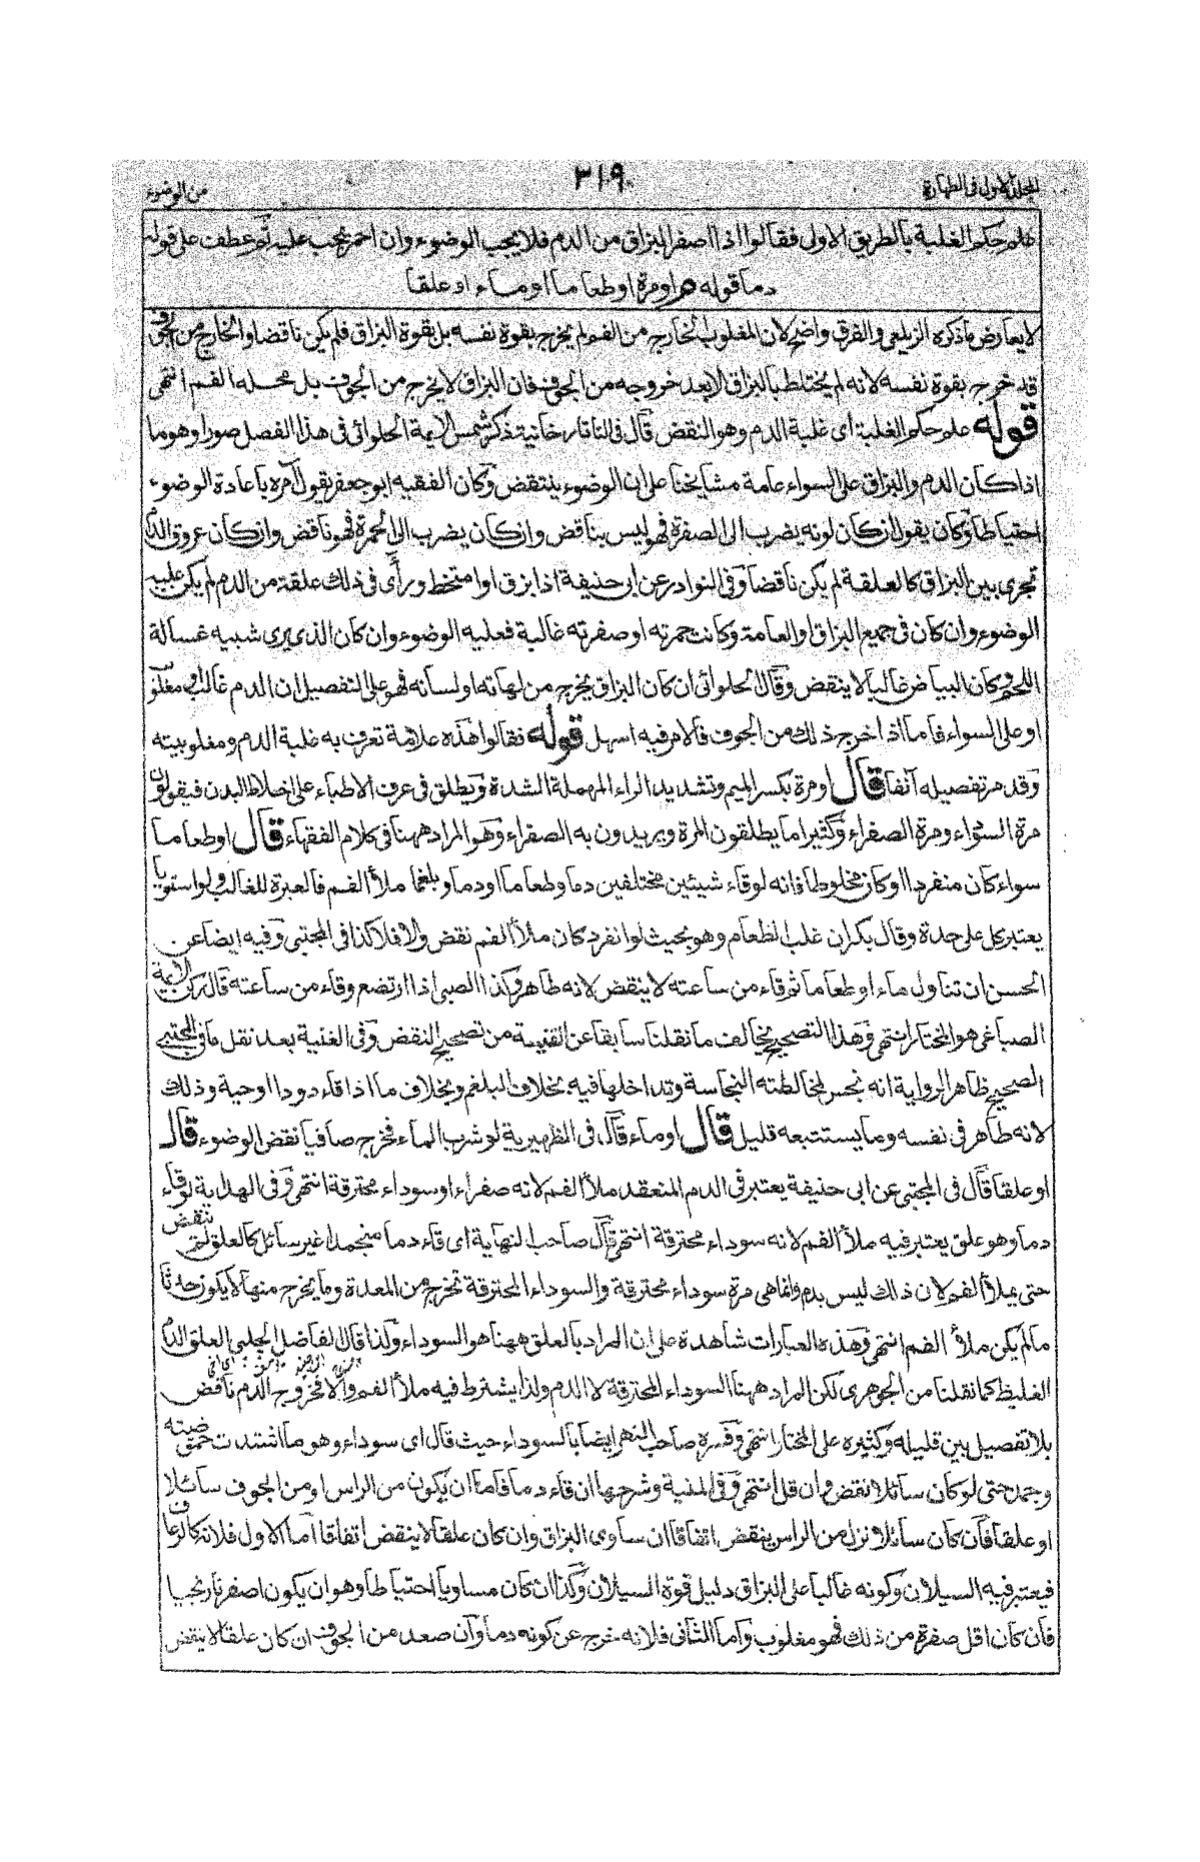 المجلد الاول فى الطهارة
٢١٩
من الوضوء
علم حكم الغلبة بالطريق الاول فقالوا اذا اصفر البزاق من الدم فلا يجب الوضوء وان احمر يجب عليه ثم عطف على قوله
دما قوله هر اومرة اوطعاما اوماء اوعلقا
لا يعارض ما ذكره الزيلعى والفرق واضح لان المغلوب الخارج من الفم لم يخرج بقوة نفسه بل بقوة البزاق فلم يكن ناقضا والخارج من الجوف
قد خرج بقوة نفسه لانه لم يختلط بالبزاق الا بعد خروجه من الجوف فان البزاق لا يخرج من الجوف بل محله الفم انتهى
قوله علم حكم الغلبة اى غلبة الدم وهو النقض قال فى التاتارخانية ذكر شمس الايمة الحلوائى فى هذا الفصل صورا وهو ما
اذا كان الدم والبزاق على السواء عامة مشايخنا على ان الوضوء ينتقض وكان الفقيه ابو جعفر يقول آمره باعادة الوضوء
احتياطا وكان يقول ان كان لونه يضرب الى الصفرة فهو ليس بناقض وان كان يضرب الى الحمرة فهو ناقض وان كان عروق الدم
تجرى بين البزاق كالعلقة لم يكن ناقضا وفى النوادر عن ابى حنيفة اذا بزق او امتخط ورأى فى ذلك علقة من الدم لم يكن عليه
الوضوء وان كان فى جميع البزاق او العامة وكانت حمرته او صفرته غالبة فعليه الوضوء وان كان الذى يرى شبيه غسالة
اللحم وكان البياض غالبا لا ينقض وقال الحلوائى ان كان البزاق يخرج من لهاته او لسانه فهو على التفصيل ان الدم غالب او مغلوب
او على السواء فاما اذا خرج ذلك من الجوف فالامر فيه اسهل قوله فقالوا هذه علامة تعرف به غلبة الدم ومغلوبيته
وقد مر تفصيله آنفا قال اومرة بكسر الميم وتشديد الراء المهملة الشدة ويطلق فى عرف الاطباء على اخلاط البدن فيقولون
مرة السوداء ومرة الصفراء وكثيرا ما يطلقون المرة ويريدون به الصفراء وهو المراد ههنا فى كلام الفقهاء قال اوطعاما
سواء كان منفردا او كان مخلوطا فانه لوقاء شيئين مختلفين دما وطعاما او دما وبلغما ملأ الفم فالعبرة للغالب ولو استويا
يعتبر كل على حدة وقال بكر ان غلب الطعام وهو بحيث لو انفرد كان ملأ الفم نقض والا فلا كذا فى المجتبى وفيه ايضا عن
الحسن ان تناول ماء او طعاما ثم قاء من ساعته لا ينقض لانه طاهر وكذا الصبى اذا ارتضع وقاء من ساعته قال ركن الائمة
الصباغى هو المختار انتهى وهذا التصحيح يخالف ما نقلنا سابقا عن القنية من تصحيح النقض وفى الغنية بعد نقل ما فى المجتبى
الصحيح ظاهر الرواية انه نجس لمخالطته النجاسة وتداخلها فيه بخلاف البلغم وبخلاف ما اذا قاء دودا اوحية وذلك
لانه طاهر فى نفسه وما يستتبعه قليل قال اوماء قال فى الظهيرية لو شرب الماء فخرج صافيا نقض الوضوء قال
اوعلقا قال فى المجتبى عن ابى حنيفة يعتبر فى الدم المنعقد ملأ الفم لانه صفراء او سوداء محترقة انتهى وفى الهداية لوقاء
دما وهو علق يعتبر فيه ملأ الفم لانه سوداء محترقة انتهى قال صاحب النهاية اى قاء دما منجمدا غير سائل كالعلق لم ينقض
حتى يملأ الفم لان ذلك ليس بدم وانما هى مرة سوداء محترقة والسوداء المحترقة تخرج من المعدة وما يخرج منها لا يكون حدثا
مالم يكن ملأ الفم انتهى وهذه العبارات شاهدة على ان المراد بالعلق ههنا هو السوداء ولذا قال الفاضل الجلبى العلق الدم
الغليظ كما نقلنا من الجوهرى لكن المراد ههنا السوداء المحترقة لا الدم ولذا يشترط فيه ملأ الفم والا فخروج الدم ناقض
بلا تفصيل بين قليله وكثيره على المختار انتهى وفسره صاحب النهر ايضا بالسوداء حيث قال اى سوداء وهو ما اشتدت حموضته
وجمد حتى لو كان سائلا نقض وان قل انتهى وفى المنية وشرحها ان قاء دما فاما ان يكون من الراس او من الجوف سائلا
او علقا فان كان سائلا ونزل من الراس ينقض اتفاقا ان ساوى البزاق وان كان علقا لا ينقض اتفاقا اما الاول فلانه كالرعاف
فيعتبر فيه السيلان وكونه غالبا على البزاق دليل قوة السيلان وكذا ان كان مساويا احتياطا وهو ان يكون اصفر نارنجيا
فان كان اقل صفرة من ذلك فهو مغلوب واما الثانى فلانه خرج عن كونه دما وان صعد من الجوف ان كان علقا لا ينقض